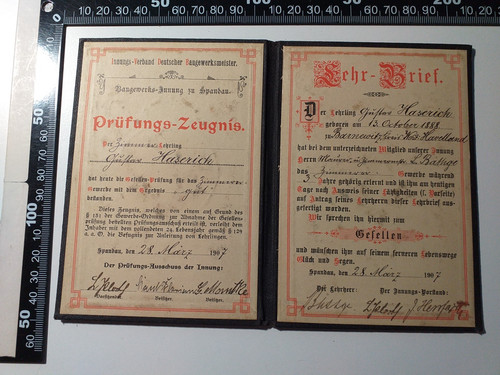 Innungs-Verband Deutscher Baugewerksmeister.
Baugewerks-Innung zu Spandau.
Prüfungs-Zeugnis.
Der Zimmerer Lehrling
Gustav Haserich
hat heute die Gesellen-Prüfung für das Zimmerer-
Gewerbe mit dem Ergebnis „gut"
bestanden.
Dieses Zeugnis, welches von einem auf Grund des
§ 131 der Gewerbe-Ordnung zur Abnahme der Gesellen-
prüfung behuften Prüfungsausschuß erteilt ist, verleiht dem
Inhaber mit dem vollendeten 24. Lebensjahr gemäß § 129
a. a. O. die Befugnis zur Anleitung von Lehrlingen.
Spandau, den 28. März 1907
Der Prüfungs-Ausschuss der Innung:
Vorsitzender. Beisitzer. Beisitzer.
Lehr-Brief.
Der Lehrling Gustav Haserich
geboren am 13. October 1888
zu Barnewitz, Kreis West-Havelland
hat bei dem unterzeichneten Mitglied unserer Innung
Herrn Maurer u. Zimmermstr.
das Zimmerer Gewerbe während
3 Jahre gehörig erlernt und ist ihm am heutigen
Tage nach Ausweis seiner Fähigkeiten
auf Antrag seines Lehrherrn dieser Lehrbrief aus-
gefertigt worden.
Wir sprechen ihn hiermit zum
Gesellen
und wünschen ihm auf seinem ferneren Lebenswege
Glück und Segen.
Spandau, den 28. März 1907
Der Lehrherr: Der Innungs-Vorstand: